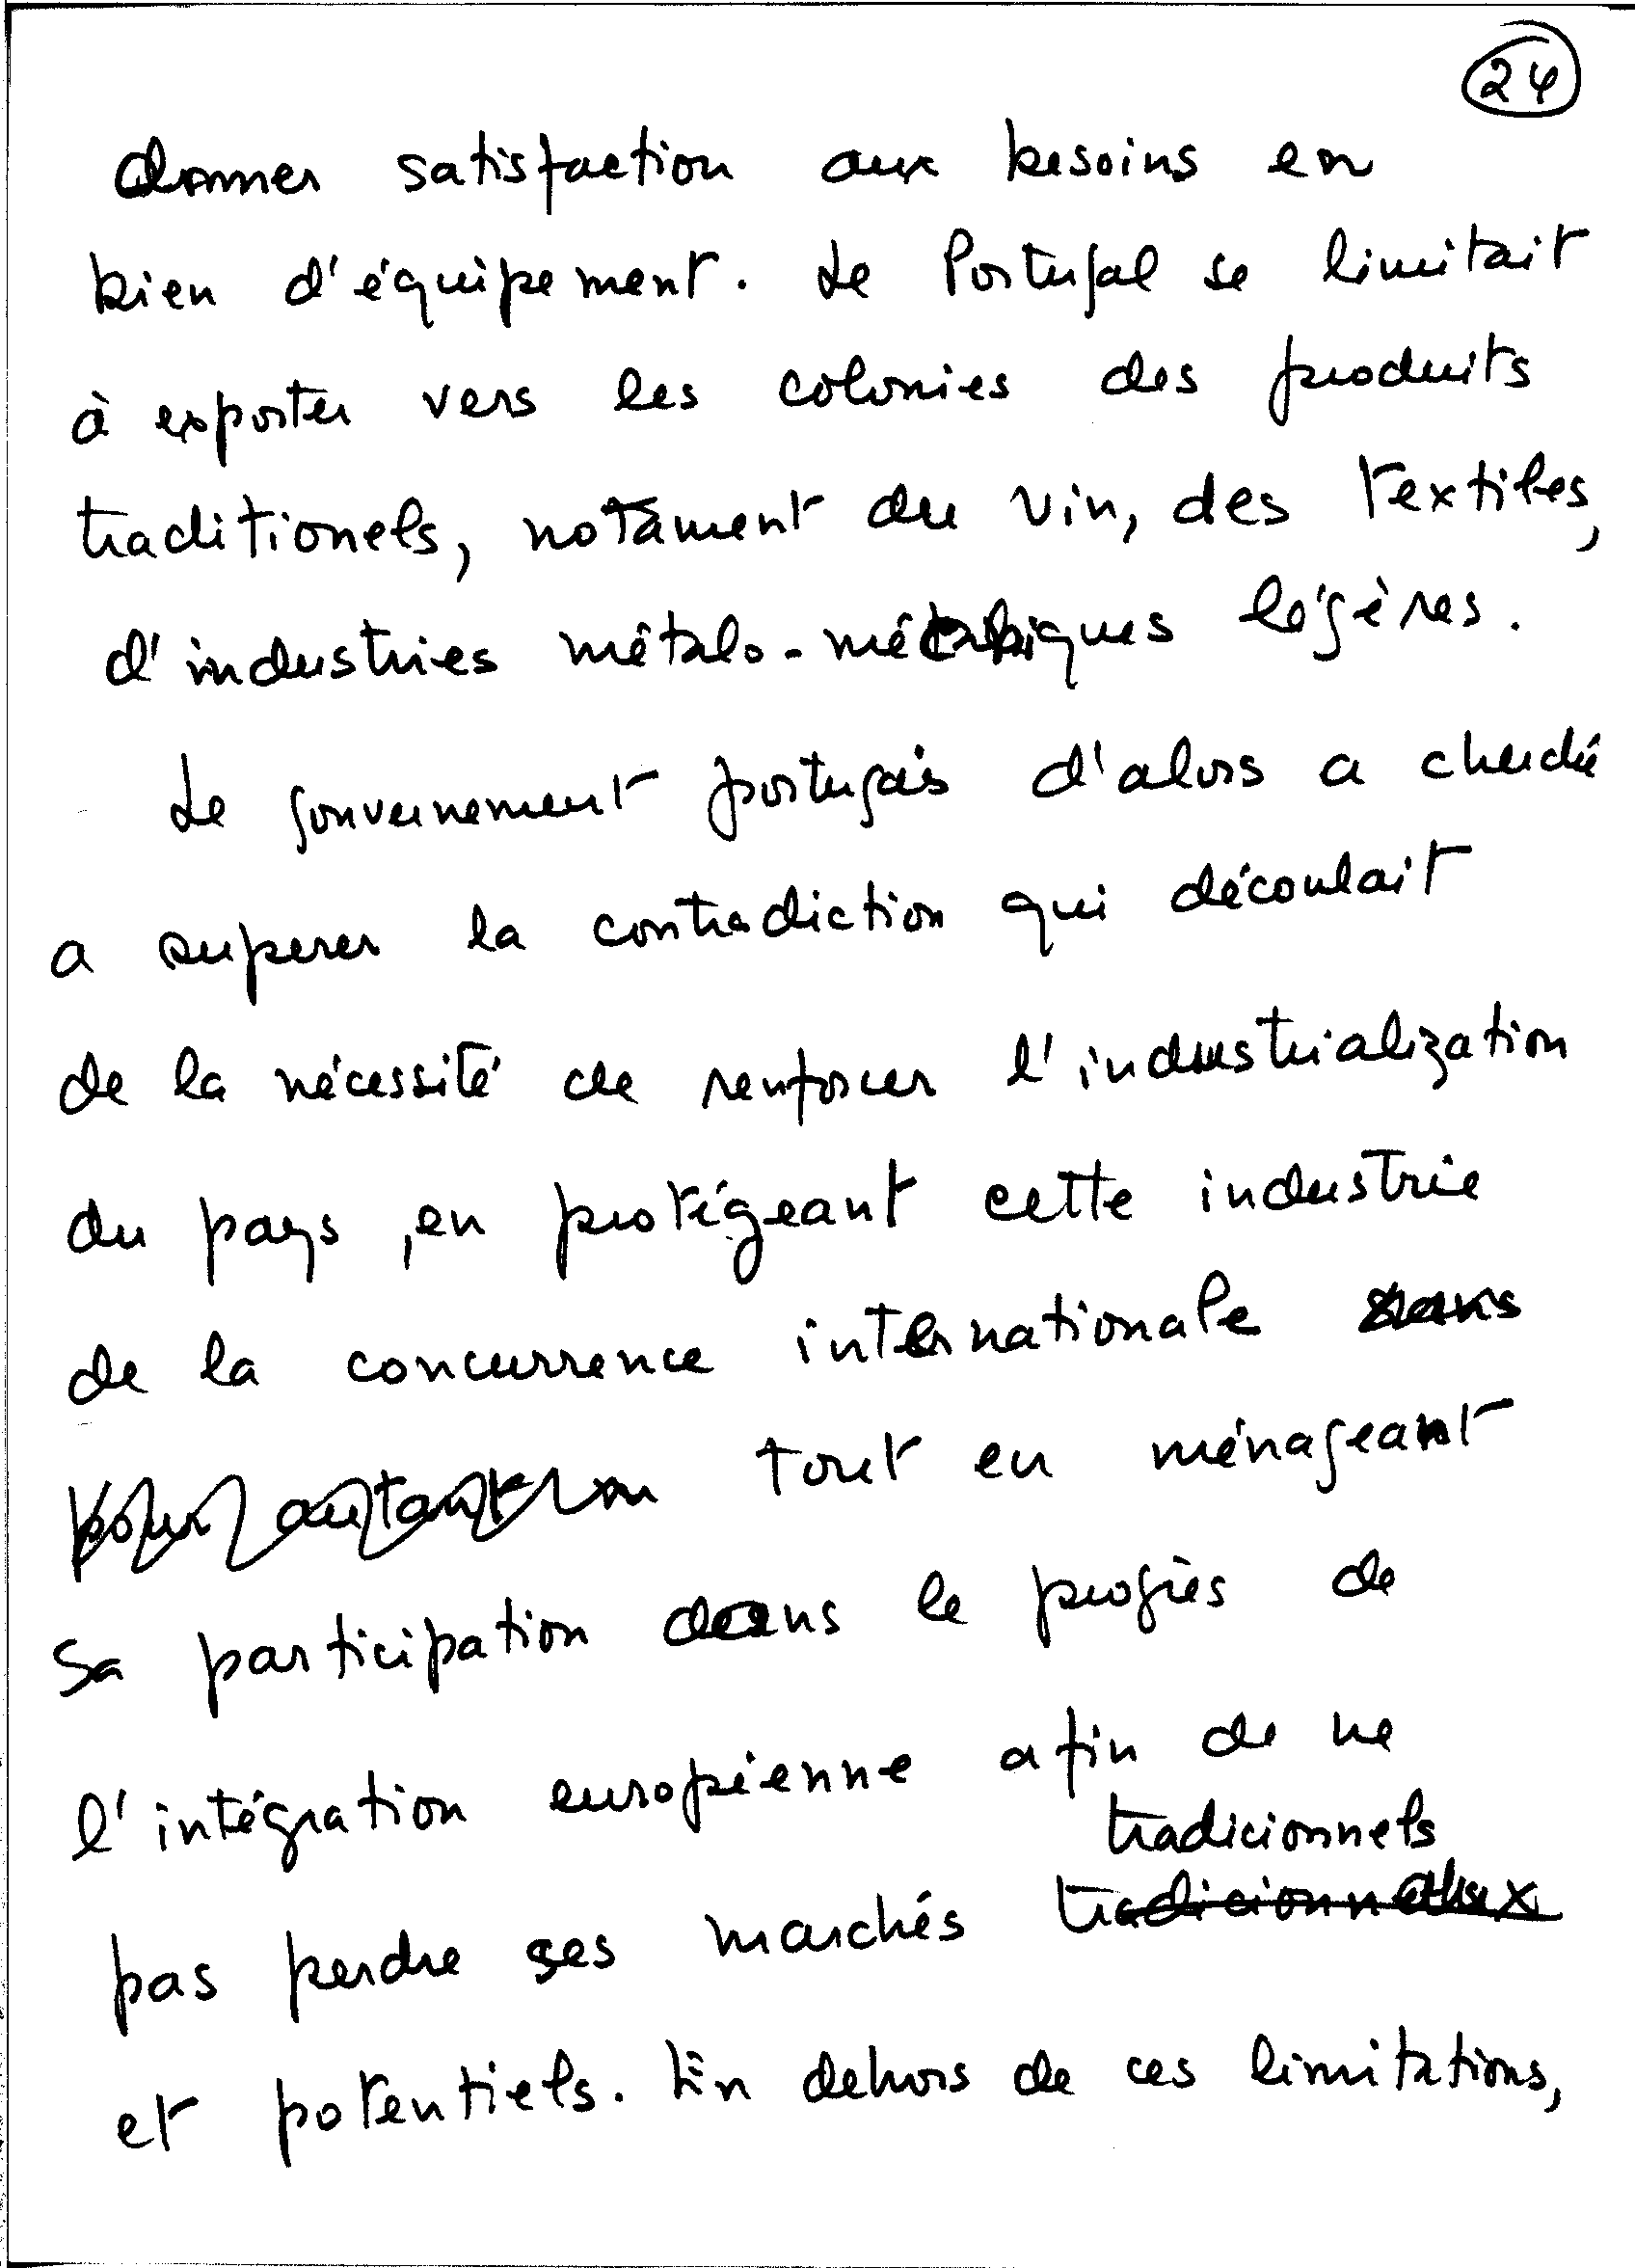 24
donner satisfaction aux besoins en
bien d'équipement. Le Portugal se limitait
à exporter vers les colonies des produits
traditionels, notament du vin, des textiles,
d'industries métalo-mécaniques légères.
Le gouvernement portugais d'alors a cherché
a superer la contradiction qui découlait
de la nécessité de renforcer l'industrialization
du pays, en protégeant cette industrie
de la concurrence internationale sans
pour autant tout en ménageant
sa participation dans le progrès de
l'intégration européenne afin de ne
tradicionnels
pas perdre ses marchés tradicionnaux
et potentiels. En dehors de ces limitations,